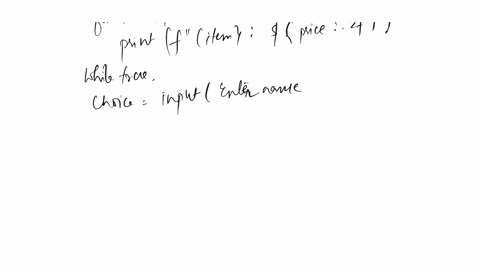 print (f"{item} : $ { price : .4 } )
while true.
choice = input ( Enter name